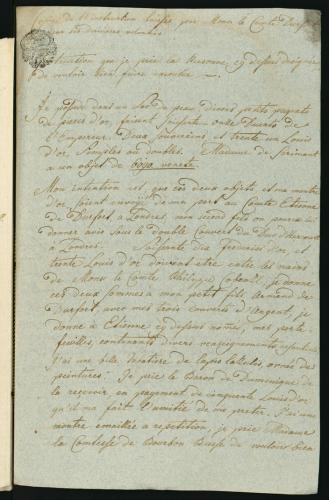 Copie de l'Instruction laissée par Monsr le Comte Durfort
sur ses dernieres volontés
Instruction que je prie la Personne cy dessous designée
de vouloir bien faire executer
Je possede dans un Sac de peau divers petits paquets
de pieces d'or, faisant
l'Empereur. Deux Souverains et trente un Louis
d'or, Simples ou doubles. Madame de
a un objet de
Mon intention est, que ces deux objets et ma montre
d'or, soient envoyés de ma part au Comte Etienne
de Durfort à Londres, mon second fils on pourra lui
donner avis sous le double Couvert du Duc d'Harcourt
à Londres. Soixante dix Frederics d'or, et
trente Louis d'or doivent etre entre les mains
de Monsr le Comte Philippe Cobenzl, je donne
ces deux sommes à mon petit fils, Armand de
Durfort, avec mes trois couverts d'Argent, je
donne à Etienne cy dessus nommé, mes porte
feuilles, contenants divers renseignements
J'ai une belle Tabatiere de lapis lazulis, ornée de
peintures. Je prie le Baron de Dominique de
la recevoir en payement de cinquante Louis d'or
qu'il m'a fait l'amitié de me preter. J'ai une
montre emaillée a repetition, je prie Madame
la Comtesse de Bourbon Busset de vouloir bien